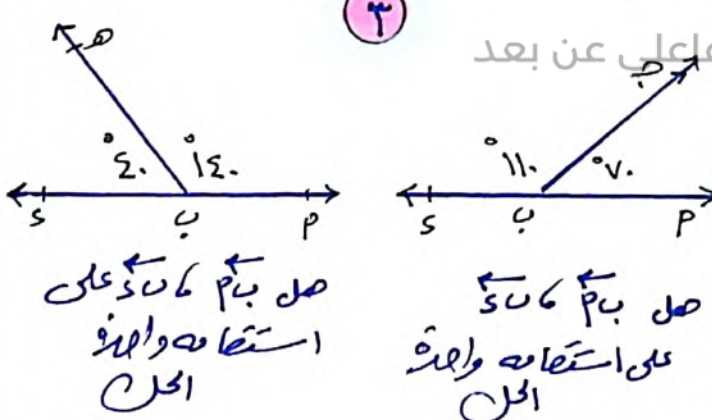 ٣
فاعلي عن بعد
ج
١١٠° ٧٠°
د ب م
هل بم، بد
على استقامه واحدة
الحل
هـ
٤٠° ١٤٠°
د ب م
هل بم، بد على
استقامه واحدة
الحل